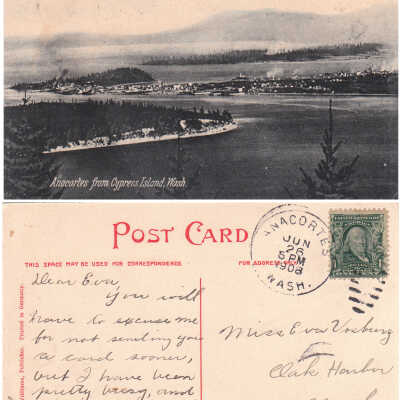 Anacortes from Cypress Island, Wash.
POST CARD
THIS SPACE MAY BE USED FOR CORRESPONDENCE.
FOR ADDRESS
ANACORTES
JUN
26
5 PM
1908
WASH.
Dear Eva,
You will
have to excuse me
for not sending you
a card sooner,
but I have been
pretty busy, and
Miss Eva Vosburg
Oak Harbor
Publisher. Printed in Germany.